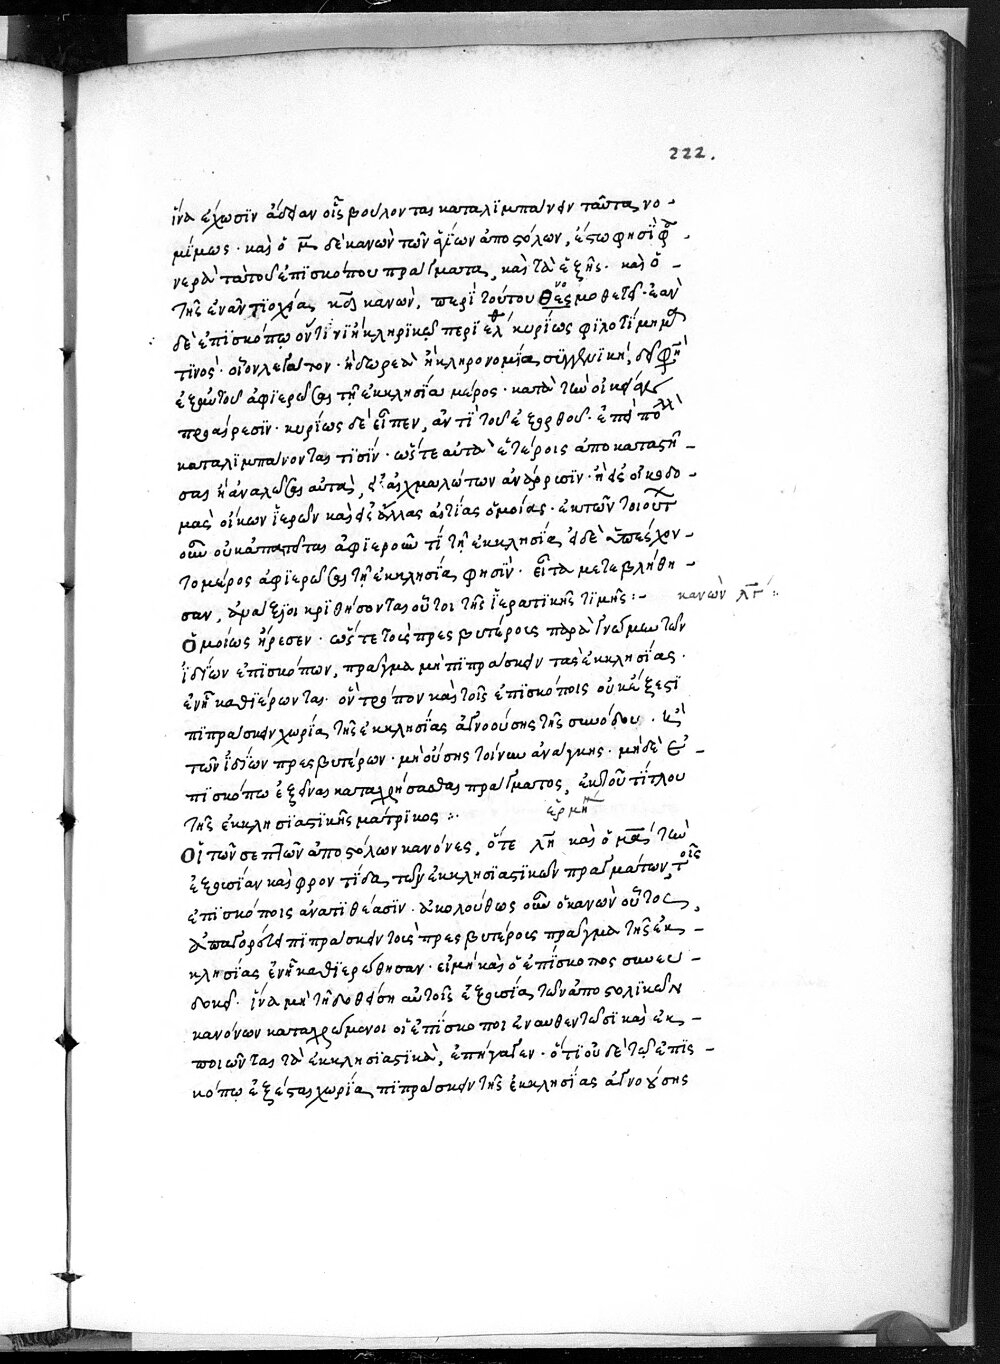 222.
ἵνα ἔχωσϊν ἄδειαν οἷς βούλονται καταλϊμπάνειν ταῦτα, νο-
μίμως· καὶ ὁ μ̅ δὲ κανὼν τῶν ἁγίων ἀποστόλων, ἔστω φησὶ φα-
νερὰ τὰ τοῦ ἐπϊσκόπου πράγματα, καὶ τὰ ἑξῆς· καὶ ὁ
τῆς ἐν ἀντϊοχείᾳ κδ κανὼν, περὶ τούτου θεσμοθετεῖ· ἐὰν
δὲ ἐπϊσκόπῳ ἤ τινι κληρικῷ περιέλθῃ κυρίως φϊλοτϊμημά
τϊνος· οἷον λεγάτον· ἢ δωρεὰ ἢ κληρονομία συγγενϊκὴ,
ἐξ αὐτοῦ ἀφϊερῶσαι τῇ ἐκκλησίᾳ μέρος· κατὰ τὴν οἰκείαν
προαίρεσϊν· κυρίως δὲ εἶπεν, ἀντὶ τοῦ ἐξ ὀρθοῦ· ἐπεὶ πολλοὶ
καταλϊμπάνονται τϊσϊν· ὥστε αὐτὰ ἑτέροις ἀποκαταστῆ-
σαι ἢ ἀναλῶσαι αὐτὰ, εἰς αἰχμαλώτων ἀνάρρυσϊν· ἢ εἰς οἰκοδο-
μὰς οἴκων ἱερῶν καὶ εἰς ἄλλας αἰτίας ὁμοίας· ἐκ τῶν τοιούτων
οὖν οὐκ ἀπαιτοῦνται ἀφϊεροῦν τὶ τῇ ἐκκλησίᾳ εἰ δὲ ὑπέσχον-
το μέρος ἀφϊερῶσαι τῇ ἐκκλησίᾳ φησὶν· εἶτα μετεβλήθη-
σαν, ἀνάξϊοι κριθήσονται οὗτοι τῆς ἱερατϊκῆς τϊμῆς :- κανὼν λγ :
Ὁμοίως ἤρεσεν· ὥστε τοὺς πρεσβυτέρους παρὰ γνώμην τῶν
ἰδίων ἐπϊσκόπων, πρᾶγμα μὴ πϊπράσκειν τῆς ἐκκλησίας
ἐν ᾗ καθϊέρωνται· ὃν τρόπον καὶ τοῖς ἐπϊσκόποις οὐκ ἔξεστϊ
πϊπράσκειν χωρία τῆς ἐκκλησίας ἀγνοούσης τῆς συνόδου· καὶ
τῶν ἰδίων πρεσβυτέρων· μὴ οὔσης τοίνυν ἀνάγκης· μηδὲ ἐ-
πϊσκόπῳ ἐξεῖναι καταχρήσασθαι πράγματος, ἐκ τοῦ τίτλου
τῆς ἐκκλησϊαστϊκῆς μάτρϊκος :· ἑρμη
Οἱ τῶν σεπτῶν ἀποστόλων κανόνες, ὅτε λη καὶ ὁ μα τὴν
ἐξουσίαν καὶ φροντίδα, τῶν ἐκκλησϊαστϊκῶν πραγμάτων, τοῖς
ἐπϊσκόποις ἀνατϊθέασϊν· ἀκολούθως οὖν ὁ κανὼν οὗτος,
ἀπαγορεύει πϊπράσκειν τοὺς πρεσβυτέρους πρᾶγμα τῆς ἐκ-
κλησίας ἐν ᾗ καθϊερώθησαν· εἰ μὴ καὶ ὁ ἐπίσκοπος συνευ-
δοκεῖ· ἵνα μὴ τῇ δοθείσῃ αὐτοῖς ἐξουσίᾳ τῶν ἀποστολϊκῶν
κανόνων καταχρώμενοι οἱ ἐπίσκοποι ἐναυθεντῶσϊ καὶ ἐκ-
ποιῶνται τὰ ἐκκλησϊαστϊκὰ, ἐπήγαγεν· ὅτϊ οὐδὲ τῷ ἐπϊσ-
κόπῳ ἔξεσται χωρία, πϊπράσκειν τῆς ἐκκλησίας ἀγνοούσης